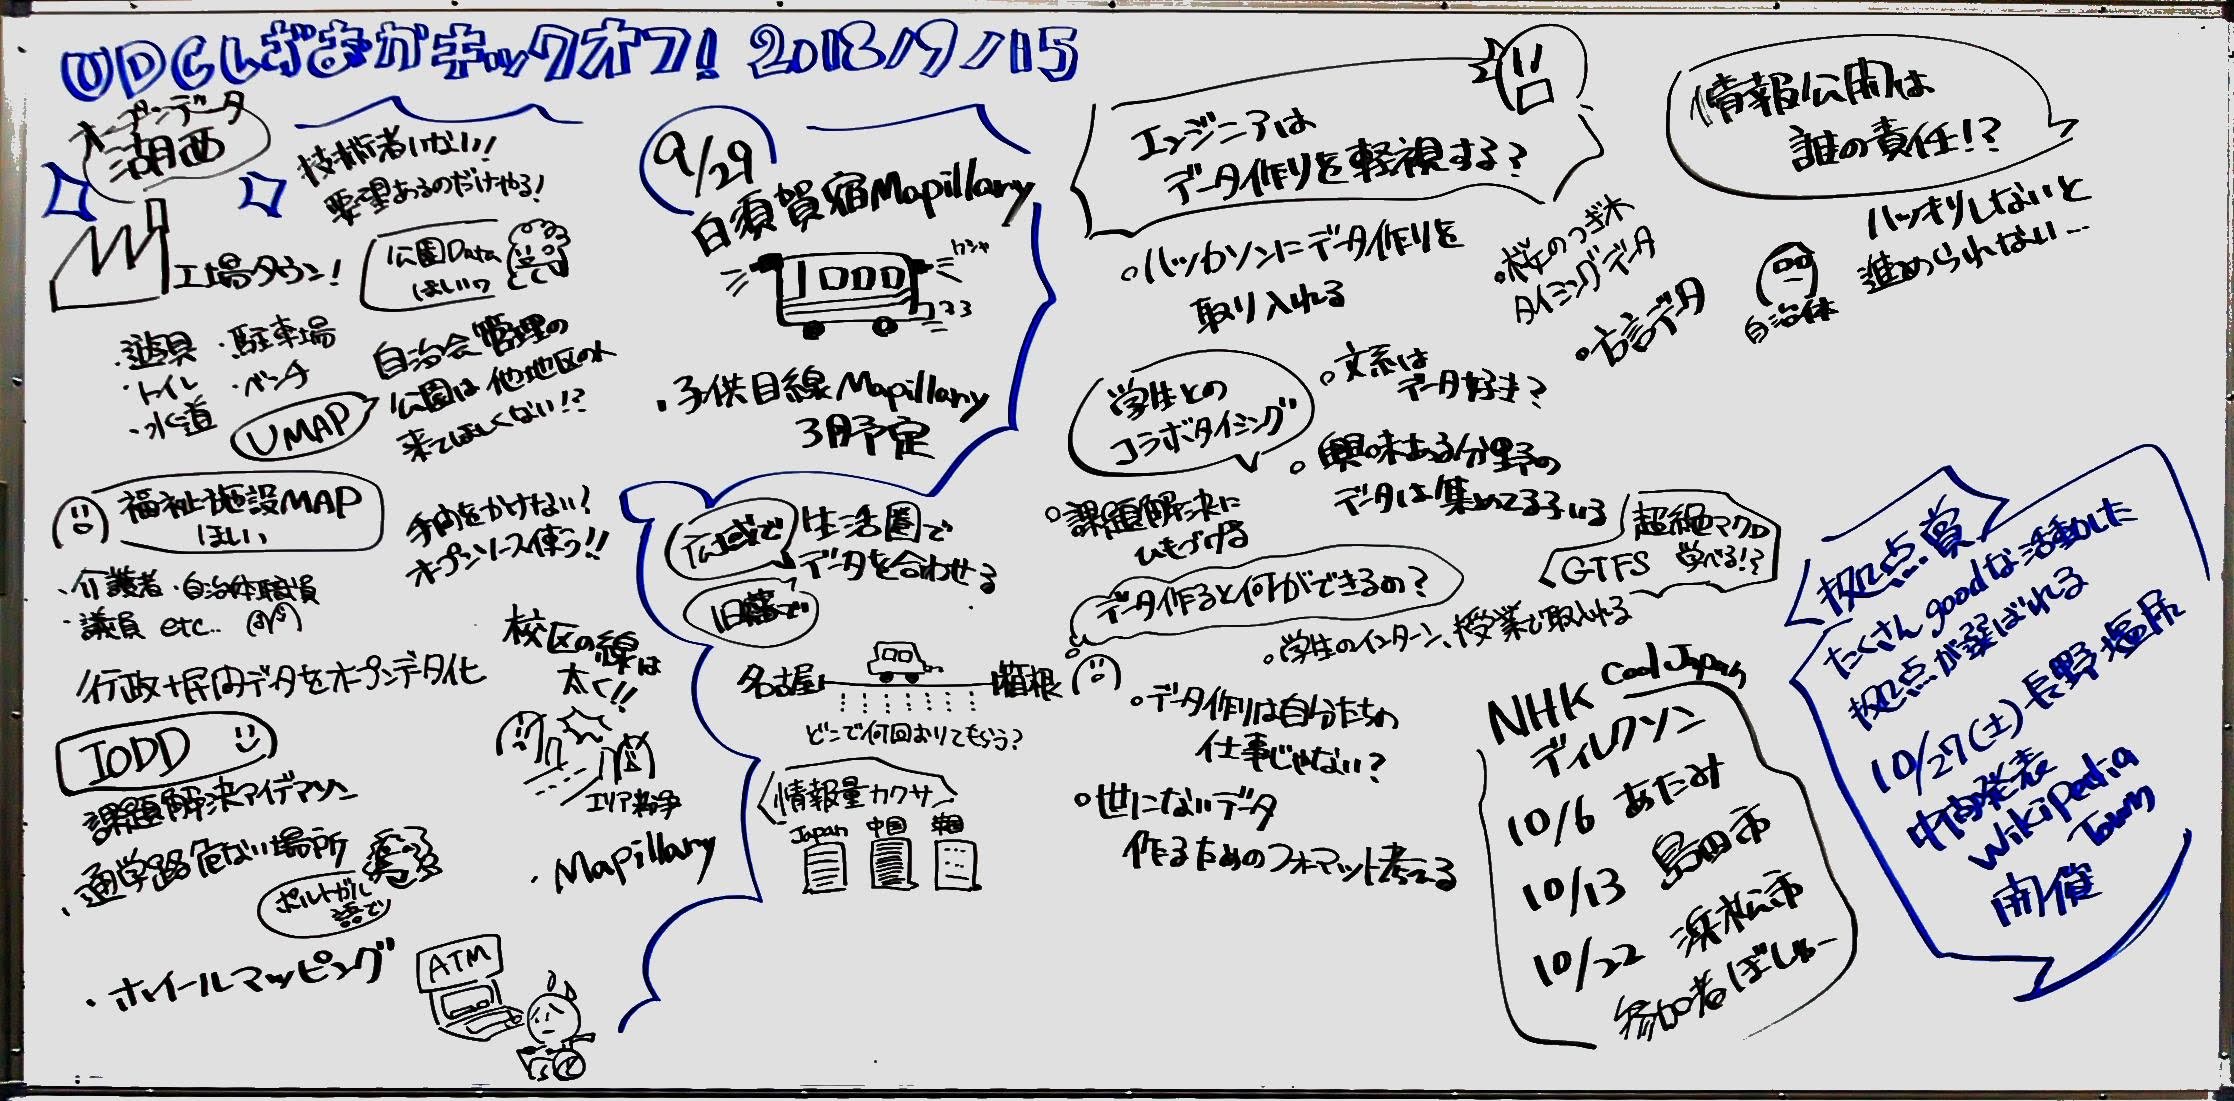 UDCしぞおかキックオフ! 2018/9/15
オープンデータ
湖西
工場タウン!
・遊具 ・駐車場
・トイレ ・ベンチ
・水道
UMAP
技術者いない!
要望あるのだけやる!
公園Data
ほしいっ
自治会管理の
公園は他地区の人
来てほしくない!?
福祉施設MAP
ほしい
・介護者・自治体職員
・議員 etc..
手間をかけない!
オープンソース使う!!
行政+民間データをオープンデータ化
IODD
課題解決アイデアソン
・通学路危ない場所
ポルトガル
語で
・ホイールマッピング
ATM
校区の線は
太く!!
エリア紛争
・Mapillary
9/29
白須賀宿Mapillary
IODD
・子供目線Mapillary
3月予定
広域で
生活圏で
データを合わせる
旧藩で
名古屋
箱根
どこで何回おりてもらう?
情報量カクサ
Japan 中国 韓国
エンジニアは
データ作りを軽視する?
○ハッカソンにデータ作りを
取り入れる
○桜のつぎ木
タイミングデータ
○方言データ
学生との
コラボタイミング
○文系は
データ好き?
○興味ある分野の
データは集めてる子いる
○課題解決に
ひもづける
超絶マクロ
GTFS 学べる!?
データ作ると何ができるの?
○学生のインターン、授業で取入れる
○データ作りは自分たちの
仕事じゃない?
○世にないデータ
作るためのフォーマット考える
情報公開は
誰の責任!?
ハッキリしないと
進められない…
自治体
NHK Cool Japan
ディレクソン
10/6 あたみ
10/13 島田市
10/22 浜松市
参加者ぼしゅー
拠点賞
たくさんgoodな活動した
拠点が選ばれる
10/27(土)長野塩尻
中間発表
Wikipedia
Town
開催